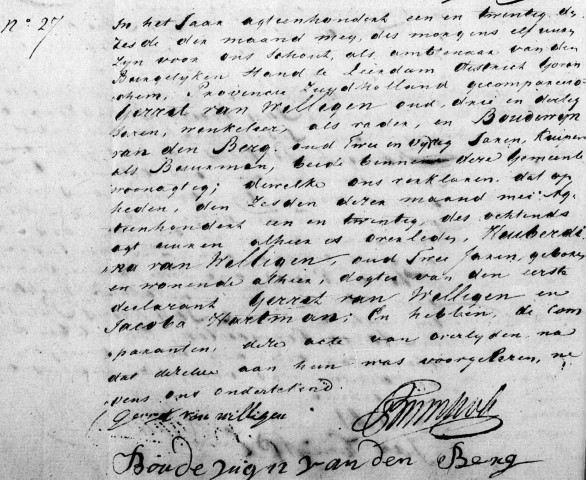 N.o 27
In het Jaar agteenhondert een en twentig, de
Zesde der maand mey, des morgens elf uuren
Zyn voor ons Schout, als ambtenaar van den
Burgelyken Stand te Leerdam District Gorin
chem, Provincie Zuydholland gecompareerd
Gerret van Welligen oud, drie en dertig
Jaren, winkelier, als vader, en Boudewyn
van den Berg, oud Twee en vyftig Jaren,
als Buurman, beide binnen deze Gemeente
woonagtig; dewelke ons verklaren, dat op
heden, den Zesden dezer maand mei Ag
teenhondert een en twentig, des ochtends
agt uuren alhier is overleden, Huuberdi
na van Welligen, oud Twee Jaren, geboren
en wonende alhier, dogter van den eerste
declarant Gerret van Welligen en
Jacoba Hartman; En hebben, de Com
paranten, deze acte van overlyden, na
dat dezelve aan hun was voorgelezen, ne
vens ons ondertekend.
Gerret van willigen
Boudewijn van den Berg